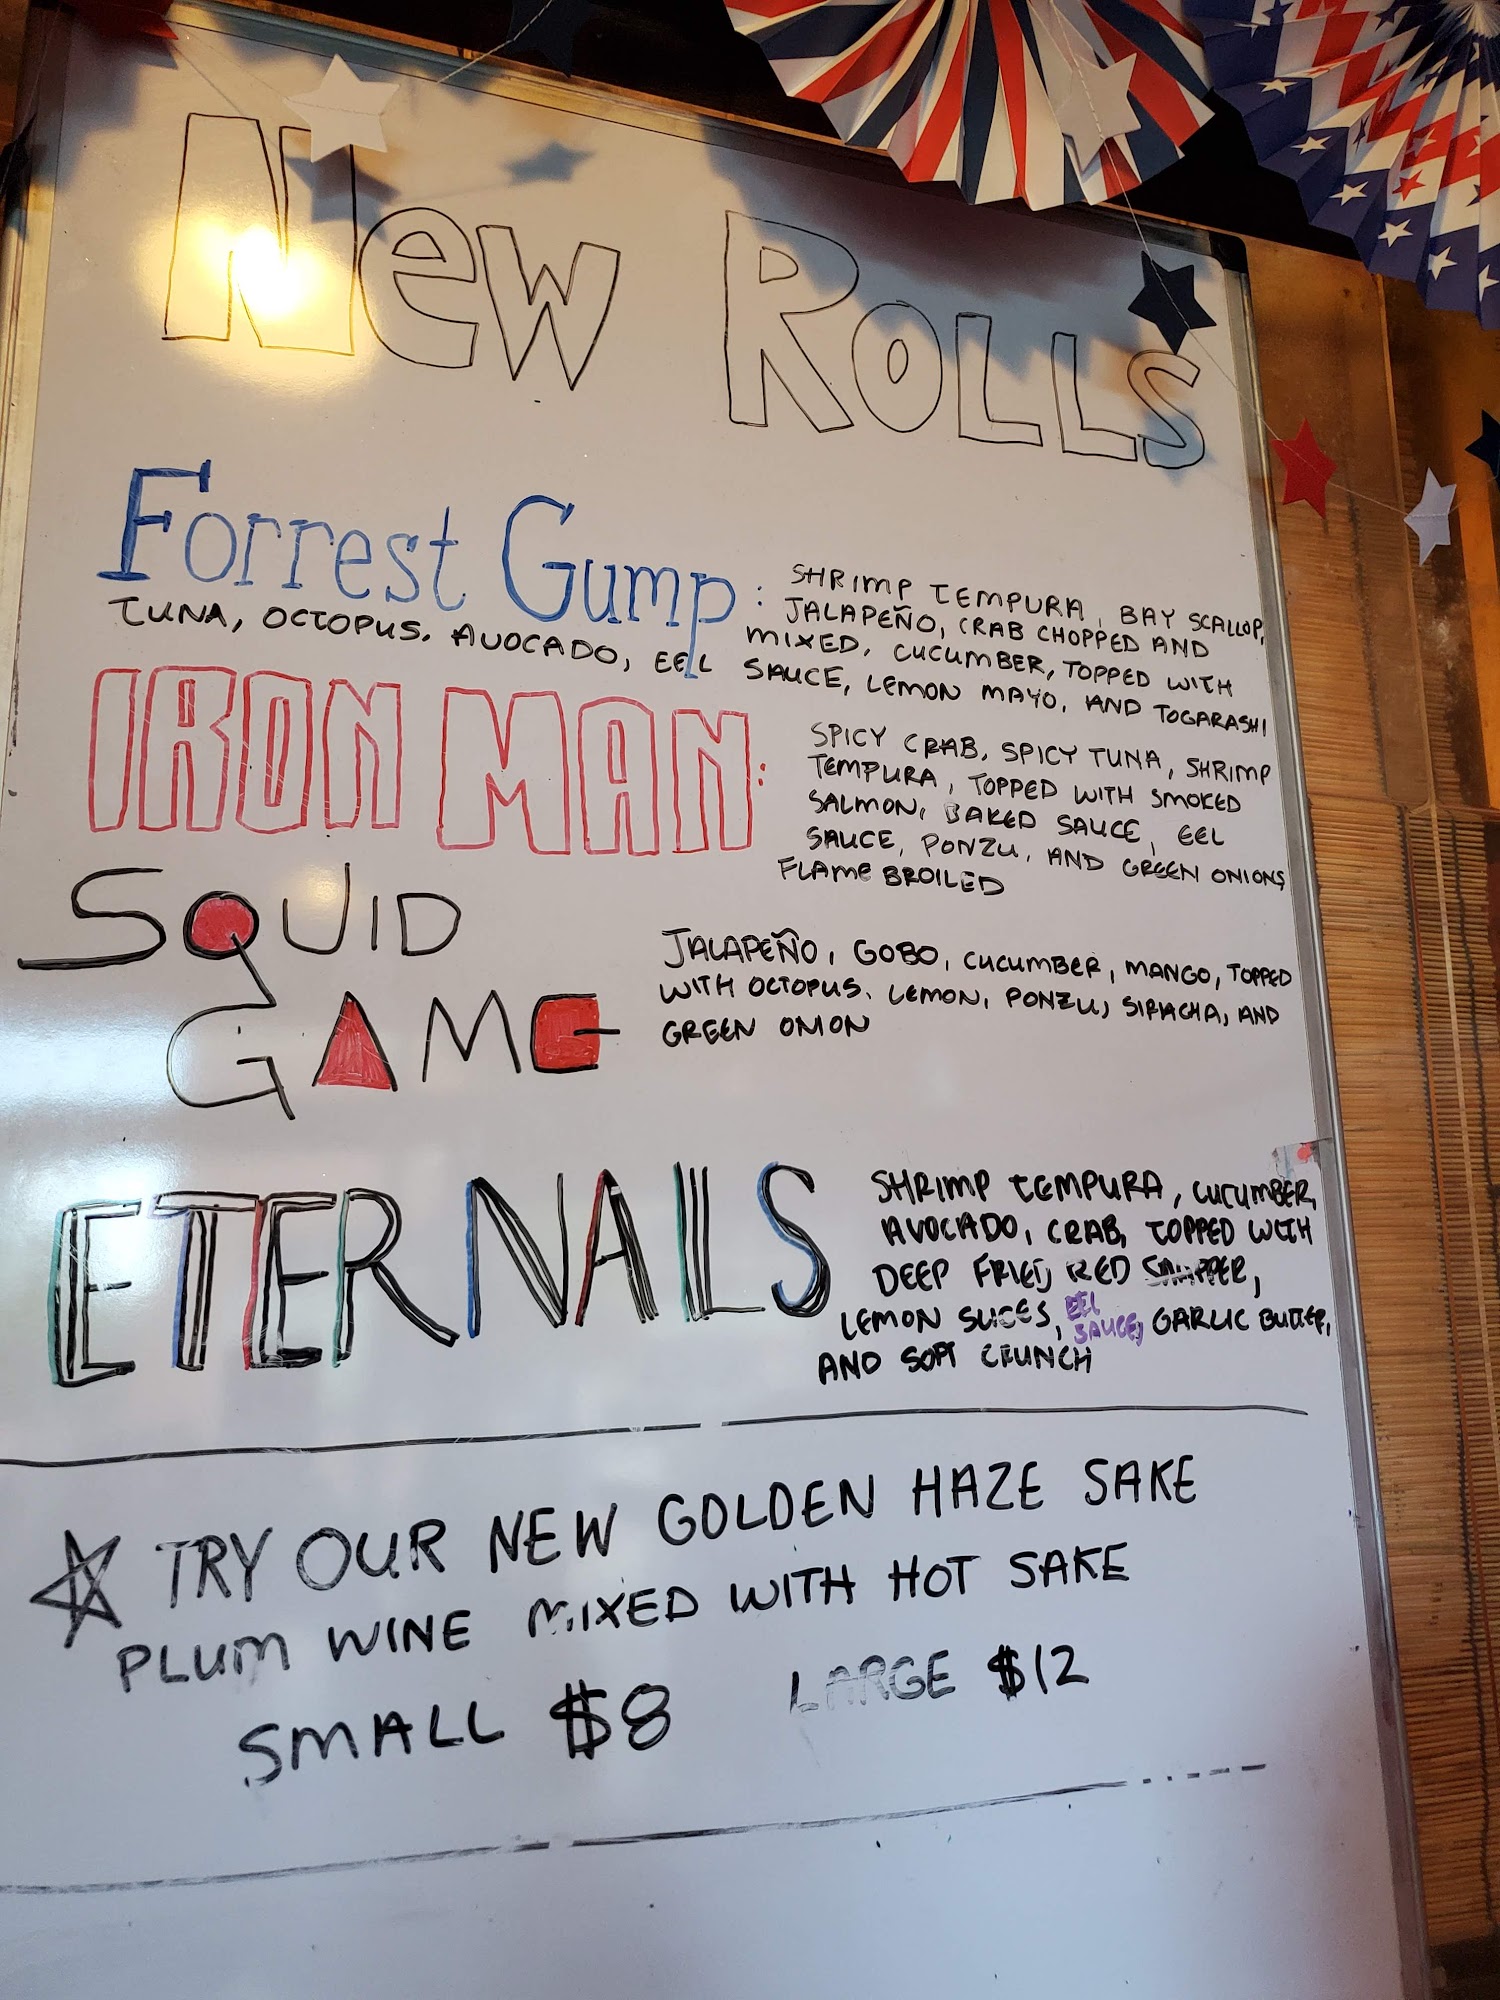 New Rolls
Forrest Gump: SHRIMP TEMPURA, BAY SCALLOP,
JALAPEÑO, CRAB CHOPPED AND
MIXED, CUCUMBER, TOPPED WITH
TUNA, OCTOPUS. AVOCADO, EEL SAUCE, LEMON MAYO, AND TOGARASHI
IRON MAN: SPICY CRAB, SPICY TUNA, SHRIMP
TEMPURA, TOPPED WITH SMOKED
SALMON, BAKED SAUCE, EEL
SAUCE, PONZU, AND GREEN ONIONS
FLAME BROILED
SQUID
GAME
JALAPEÑO, GOBO, CUCUMBER, MANGO, TOPPED
WITH OCTOPUS. LEMON, PONZU, SIRACHA, AND
GREEN ONION
ETERNALS
SHRIMP TEMPURA, CUCUMBER,
AVOCADO, CRAB, TOPPED WITH
DEEP FRIED, RED SNAPPER,
LEMON SLICES, EEL SAUCE, GARLIC BUTTER,
AND SOFT CRUNCH
TRY OUR NEW GOLDEN HAZE SAKE
PLUM WINE MIXED WITH HOT SAKE
SMALL $8 LARGE $12